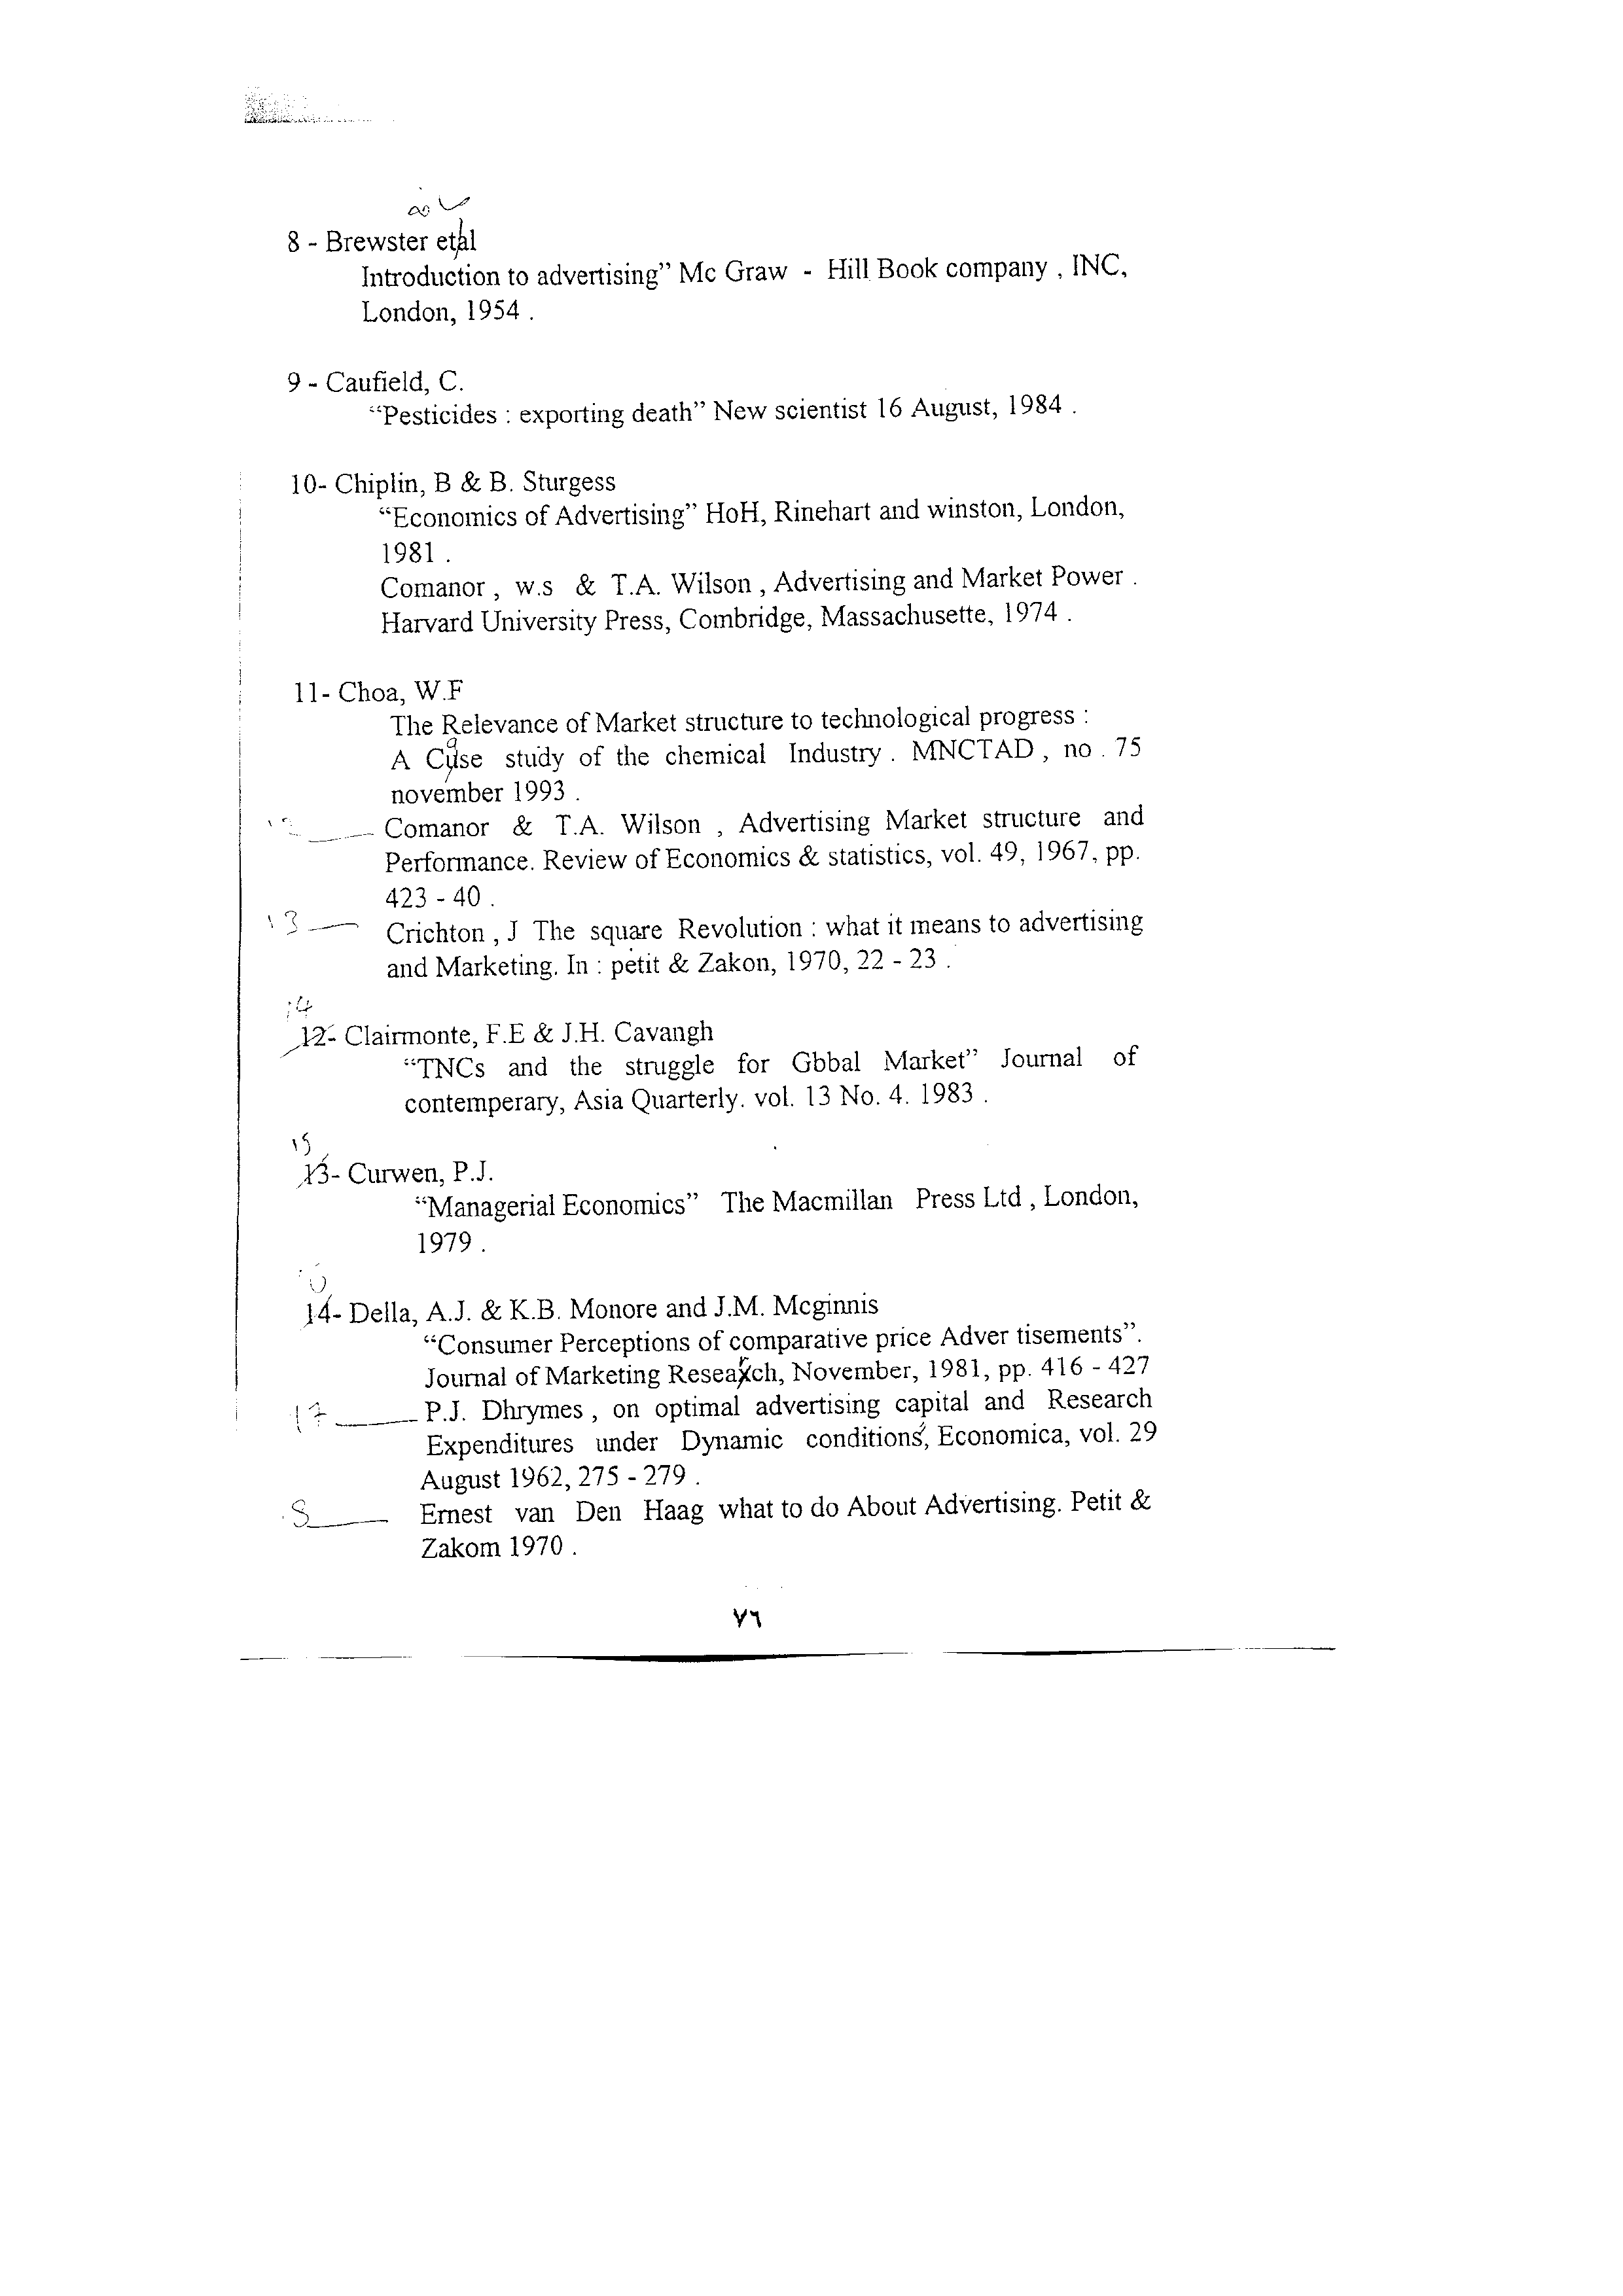 8 - Brewster etal
Introduction to advertising” Mc Graw - Hill Book company , INC,
London, 1954 .
9 - Caufield, C.
“Pesticides : exporting death” New scientist 16 August, 1984 .
10- Chiplin, B & B. Sturgess
“Economics of Advertising” HoH, Rinehart and winston, London,
1981 .
Comanor , w.s & T.A. Wilson , Advertising and Market Power .
Harvard University Press, Combridge, Massachusette, 1974 .
11- Choa, W.F
The Relevance of Market structure to technological progress :
A Case study of the chemical Industry . MNCTAD , no . 75
november 1993 .
12 Comanor & T.A. Wilson , Advertising Market structure and
Performance. Review of Economics & statistics, vol. 49, 1967, pp.
423 - 40 .
13 Crichton , J The square Revolution : what it means to advertising
and Marketing. In : petit & Zakon, 1970, 22 - 23 .
14
12- Clairmonte, F.E & J.H. Cavangh
“TNCs and the struggle for Gbbal Market” Journal of
contemperary, Asia Quarterly. vol. 13 No. 4. 1983 .
15
13- Curwen, P.J.
“Managerial Economics” The Macmillan Press Ltd , London,
1979 .
14- Della, A.J. & K.B. Monore and J.M. Mcginnis
“Consumer Perceptions of comparative price Adver tisements”.
Journal of Marketing Research, November, 1981, pp. 416 - 427
17 P.J. Dhrymes , on optimal advertising capital and Research
Expenditures under Dynamic conditions, Economica, vol. 29
August 1962, 275 - 279 .
Ernest van Den Haag what to do About Advertising. Petit &
Zakom 1970 .
٧٦